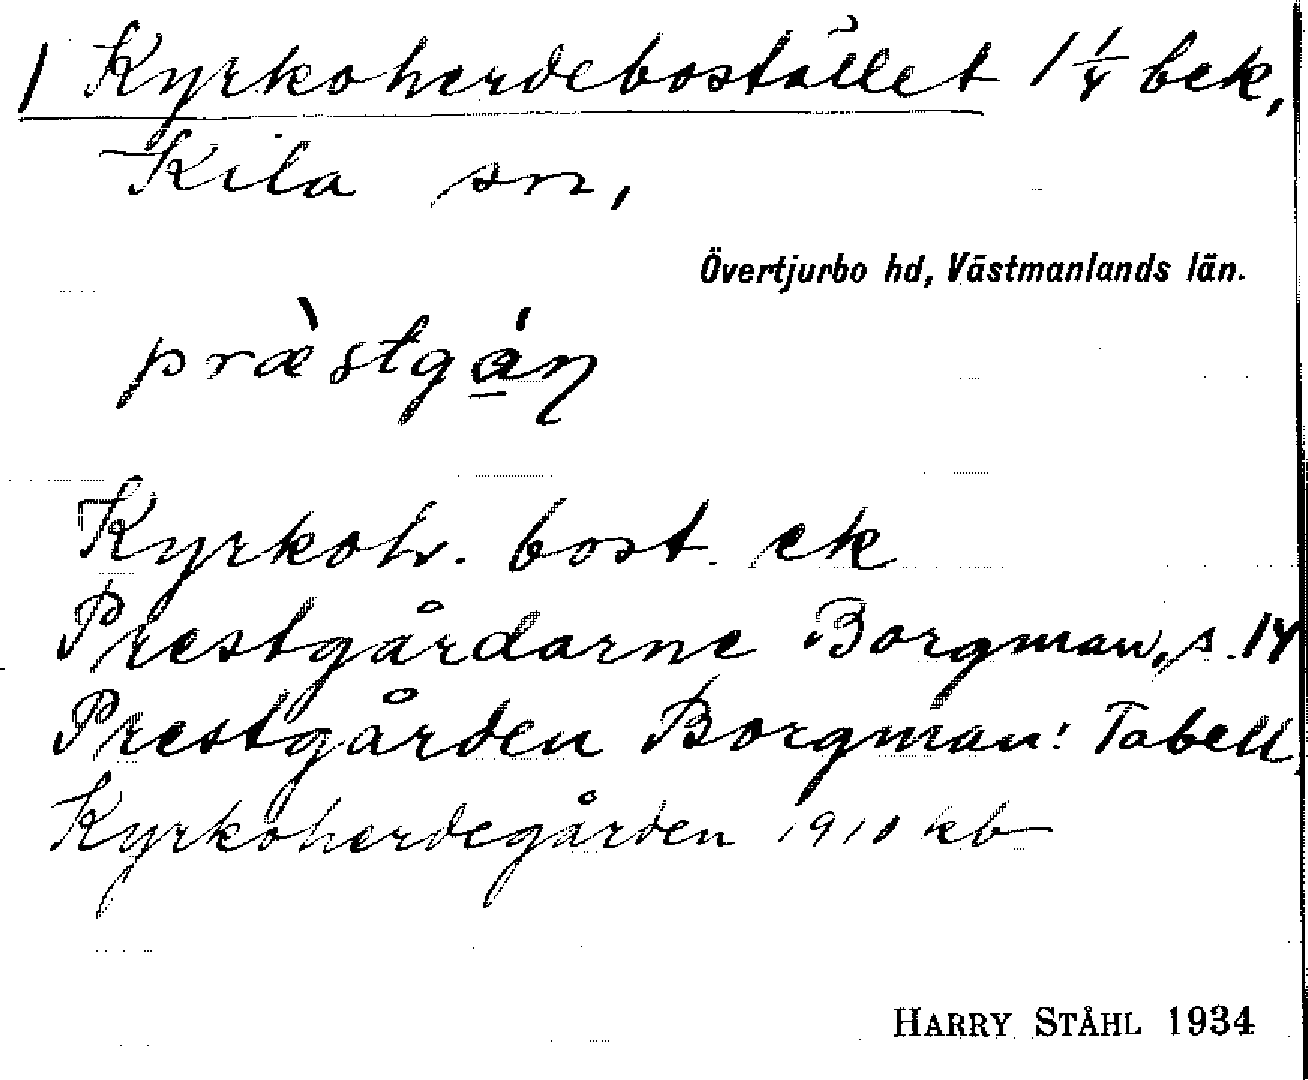 1 Kyrkoherdebostället 1 1/4 bek,
Kila sn,
Övertjurbo hd, Västmanlands län.
præ̀stgá̱ɳ
Kyrkoh. bost. ek
Prestgårdarne Borgman, s. 14
Prestgården Borgman: Tabell.
Kyrkoherdegården 1910 kb
HARRY STÅHL 1934